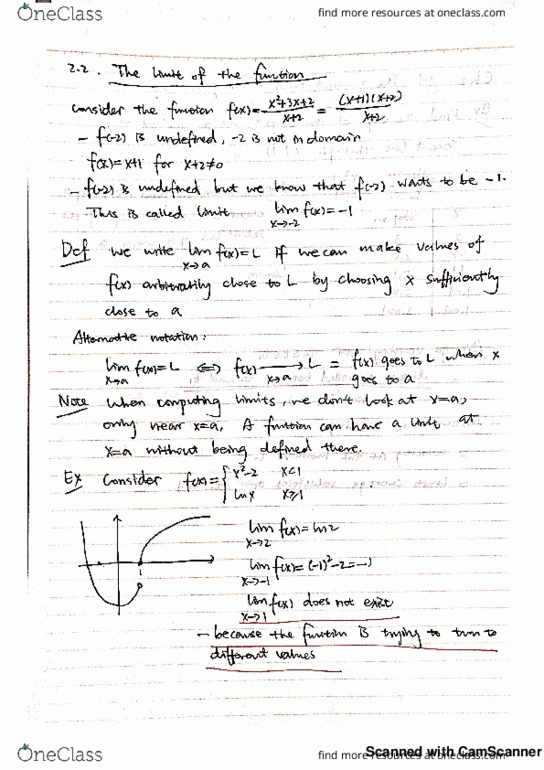 OneClass
find more resources at oneclass.com
2.2. The limit of the function
Consider the function f(x)= x²+3x+2 / x+2 = (x+1)(x+2) / x+2
- f(-2) is undefined, -2 is not in domain
f(x)=x+1 for x+2≠0
- f(-2) is undefined but we know that f(-2) wants to be -1.
This is called limit lim x→-2 f(x)=-1
Def we write lim x→a f(x)=L if we can make values of
f(x) arbitrarily close to L by choosing x sufficiently
close to a
Alternative notation:
lim x→a f(x)=L ⇔ f(x) ⟶ x→a L = f(x) goes to L when x
goes to a
Note When computing limits, we don't look at x=a,
only near x=a, A function can have a limit at
x=a without being defined there.
Ex Consider f(x)={ x²-2 x<1
lnx x≥1
lim x→2 f(x)=ln2
lim x→-1 f(x)=(-1)²-2=-1
lim x→1 f(x) does not exist
- because the function is trying to turn to
different values
OneClass
find more resources at oneclass.com
Scanned with CamScanner